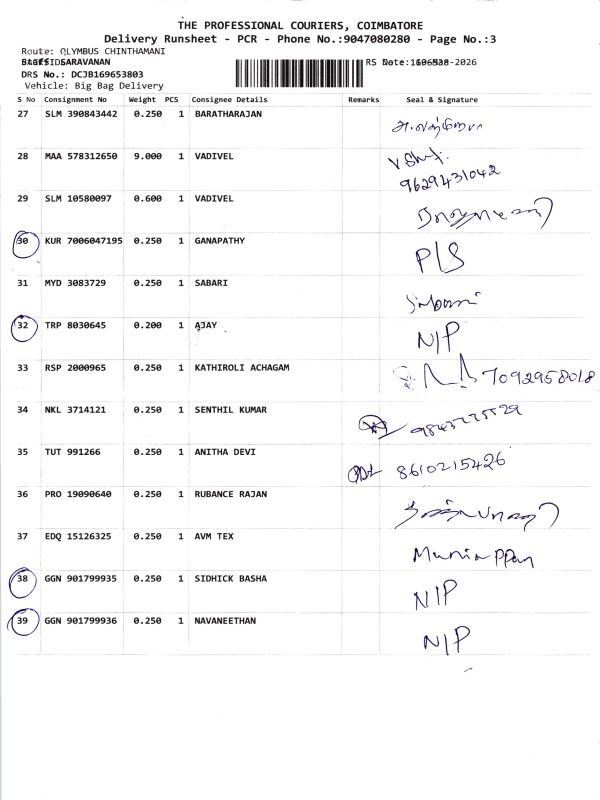 THE PROFESSIONAL COURIERS, COIMBATORE
Delivery Runsheet - PCR - Phone No.:9047080280 - Page No.:3
Route: OLYMBUS CHINTHAMANI
SARAVANAN
DRS No.: DCJB169653803
Vehicle: Big Bag Delivery
S No Consignment No Weight PCS Consignee Details Remarks Seal & Signature
27 SLM 390843442 0.250 1 BARATHARAJAN
28 MAA 578312650 9.000 1 VADIVEL
9629431042
29 SLM 10580097 0.600 1 VADIVEL
30 KUR 7006047195 0.250 1 GANAPATHY P/S
31 MYD 3083729 0.250 1 SABARI
32 TRP 8030645 0.200 1 AJAY N/P
33 RSP 2000965 0.250 1 KATHIROLI ACHAGAM 7092958018
34 NKL 3714121 0.250 1 SENTHIL KUMAR
35 TUT 991266 0.250 1 ANITHA DEVI 8610215426
36 PRO 19090640 0.250 1 RUBANCE RAJAN
37 EDQ 15126325 0.250 1 AVM TEX Muniappan
38 GGN 901799935 0.250 1 SIDHICK BASHA N/P
39 GGN 901799936 0.250 1 NAVANEETHAN N/P